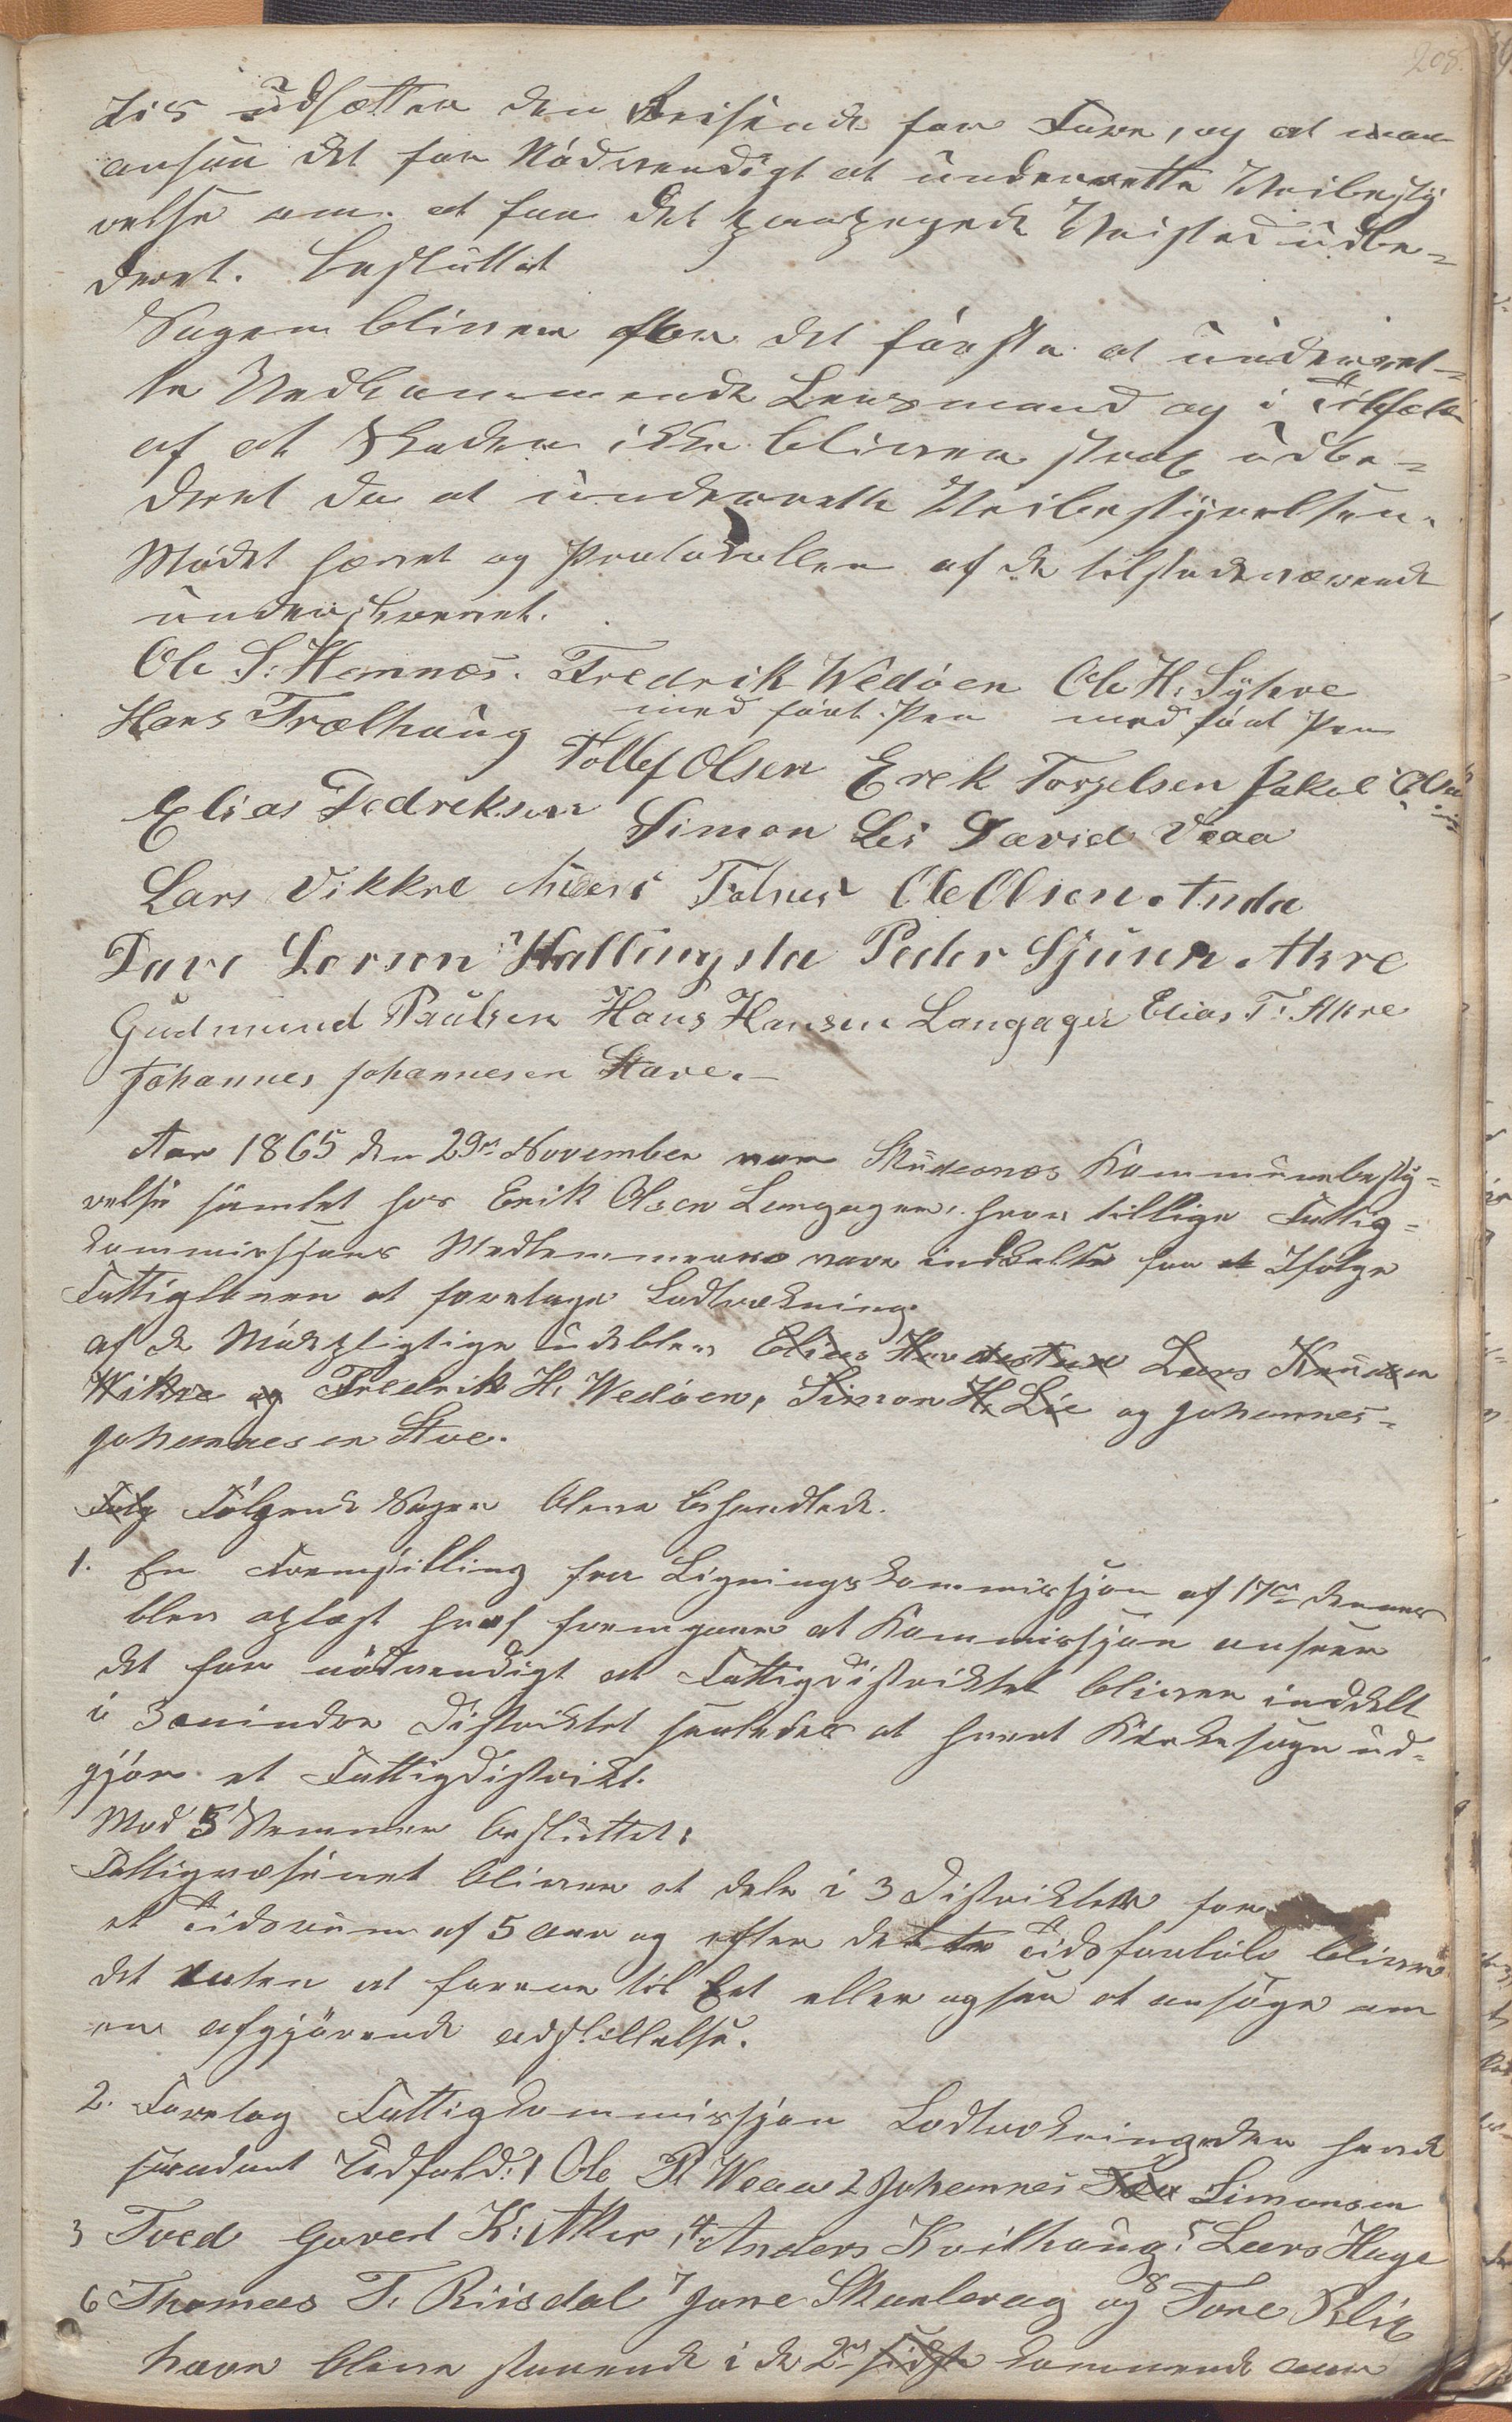 208.
lis udsætter den Reisende for Fare, og at man
ansaa det for Nødvendigt at underrette Veibesty
relse om at faa det paapegede Veisted udbe-
dret. Besluttet
Sagen bliver for det første at underret-
te Vedkommende Lensmand og i Tilfælde
af at Skaden ikke bliver strax udbe-
dret da at underrette Veibestyrelsen.
Mødet hævet og Protokollen af de tilstedeværende
underskrevet.
Ole S. Hemnæs. Fredrik Wedøen Ole H. Syhre
med ført Pen med ført Pen
Hans Trælhaug Tollef Olsen Erek Torgelsen Jakob Olsen
Elias Fedreksen Simon Lei David Vaaa
Lars Vikkre Anders Ole Olsen Anda
Tare Larsen Hallingsta Peder Sjurs. Akre
Gudmund Paulsen Hans Hansen Langager Elias T. Akre
Johannes Johannesen Stave.
Aar 1865 den 29de November var Skudenæs Kommunebesty-
relse samlet hos Erik Olsen Langager, hvor tillige Fattig-
kommissjons Medlemmerne vare indkaldte for at Ifølge
Fattigloven at foretage Lodtrækning.
af de Mødepligtige udeblev Elias Lars Knudsen
Wikre og Fredrik H. Wedøen, Simon H. Lie og Johannes-
Johannesen Stve.
Følg Følgende Sager bleve behandlede.
1. En Fremstilling fra Ligningskommissjon af 17de dennes
blev oplæst hvoraf fremgaar at Kommissjon anseer
det for nødvendigt at Fattigdistriktet bliver inddelt
i 3 mindre Distrikter saaledes at hvert Kirkesogn ud-
gjør et Fattigdistrikt.
Mod 5 Stemmer besluttet:
Fattigvæsenet bliver at dele i 3 Distrikter for
et Tidsrum af 5 Aar og efter dette Tidsforløb bliver
det enten at forene til Eet eller ogsaa at ansøge om
en afgjørende adskillelse.
2. Foretog Fattigkommissjon Lodtrækningen der havde
saadant Udfald: 1 Ole P. Weaa 2 Johannes Simonsen
3 Tved Gaved K. Aker, 4. Anders Kvilhaug, 5 Lars Hage
6 Thomas T. Riisdal 7 Jone Skarlevag og 8 Tore Blix
have blive staaende i de 2de sidste kommende aar